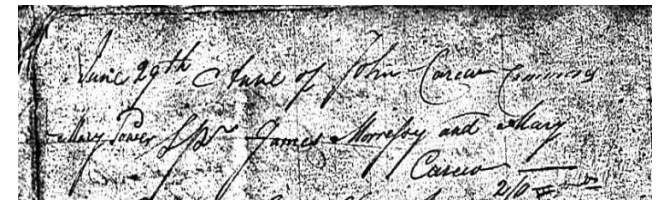 June 29th Anne of John Carew
Mary Power Sps James Morressy and Mary
Carew